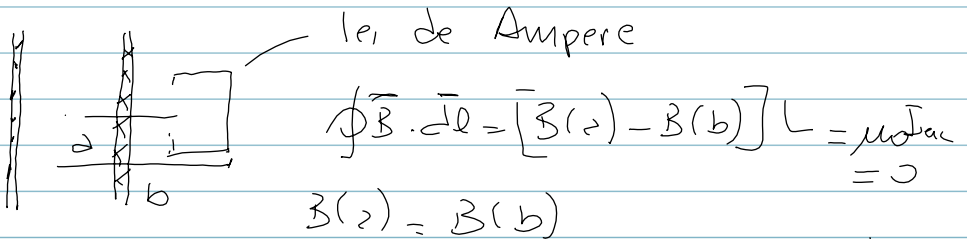 lei de Ampere
a
b
∮B̄ · d̄l = [B(a) - B(b)] L = μ₀ I enc
= 0
B(a) = B(b)